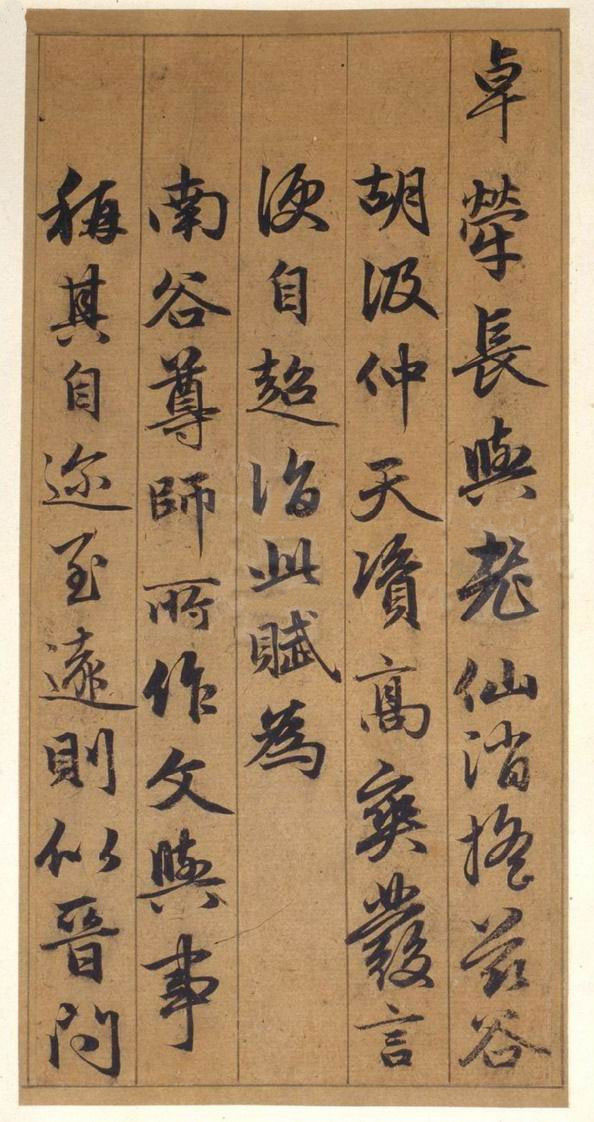 卓犖長與老仙消搖兹谷
胡汲仲天資高爽發言
便自超詣此賦為
南谷尊師所作文與事
稱其自迩至遠則似晉問